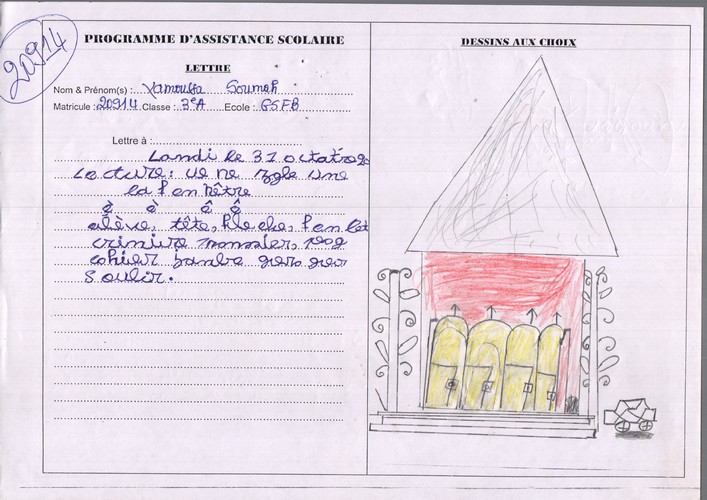 20914
PROGRAMME D'ASSISTANCE SCOLAIRE
LETTRE
Nom & Prénom(s) : Yamoussa Soumah
Matricule : 20914 Classe : 3eA Ecole : GSFB
Lettre à :
Landi le 31 octatro
Lecture : ue ne une
la fenhêtre
è è ê ê
alève, tête, fleche, fen
crinire
cahier gers ger
soulir.
DESSINS AUX CHOIX